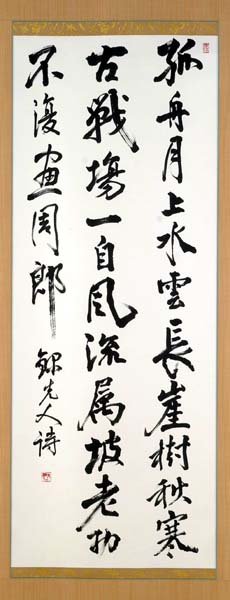 孤舟月上水雲長崖樹秋寒
古戰場一自風流属坡老
不復畫周郎
録先人詩